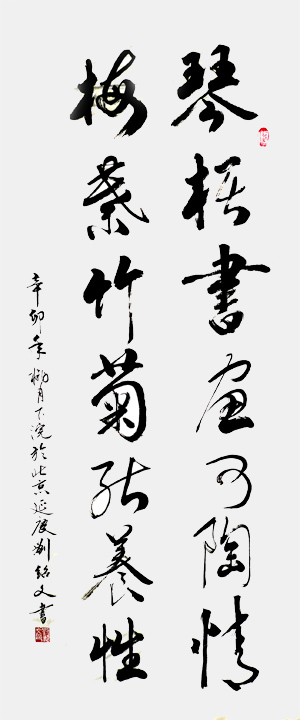 琴棋書畫可陶情
梅蘭竹菊能養性
辛卯年柳月下浣於北京延慶劉紹文書